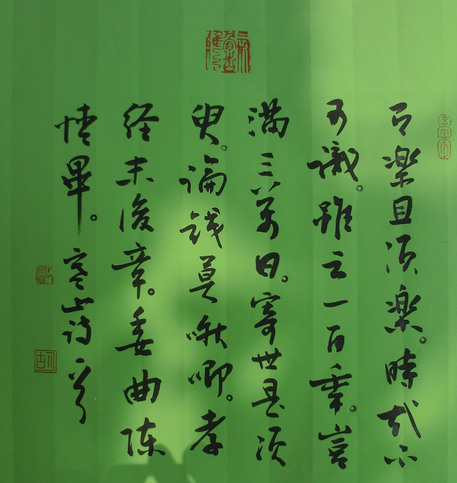 可樂且須樂。時哉不
可識。雖云一百年。豈
滿三萬日。寄世是須
臾。論錢莫啾唧。孝
經末後章。委曲陳
情畢。寒山詩一首